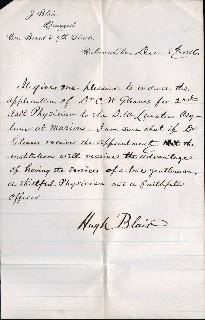 J. Blair
Druggist
Cor. Broad & 9th Streets
Richmond, Va., Dec
It gives me pleasure to endorse the
application of Dr C. W. Gleaves for 2nd
Asst Physician to the S.W. Lunatic Asy-
lum at Marion. I am sure that if Dr
Gleaves receive the appointment the
institution will receive the advantage
of having the services of a true gentleman,
a skillful Physician and a faithful
Officer
Hugh Blair